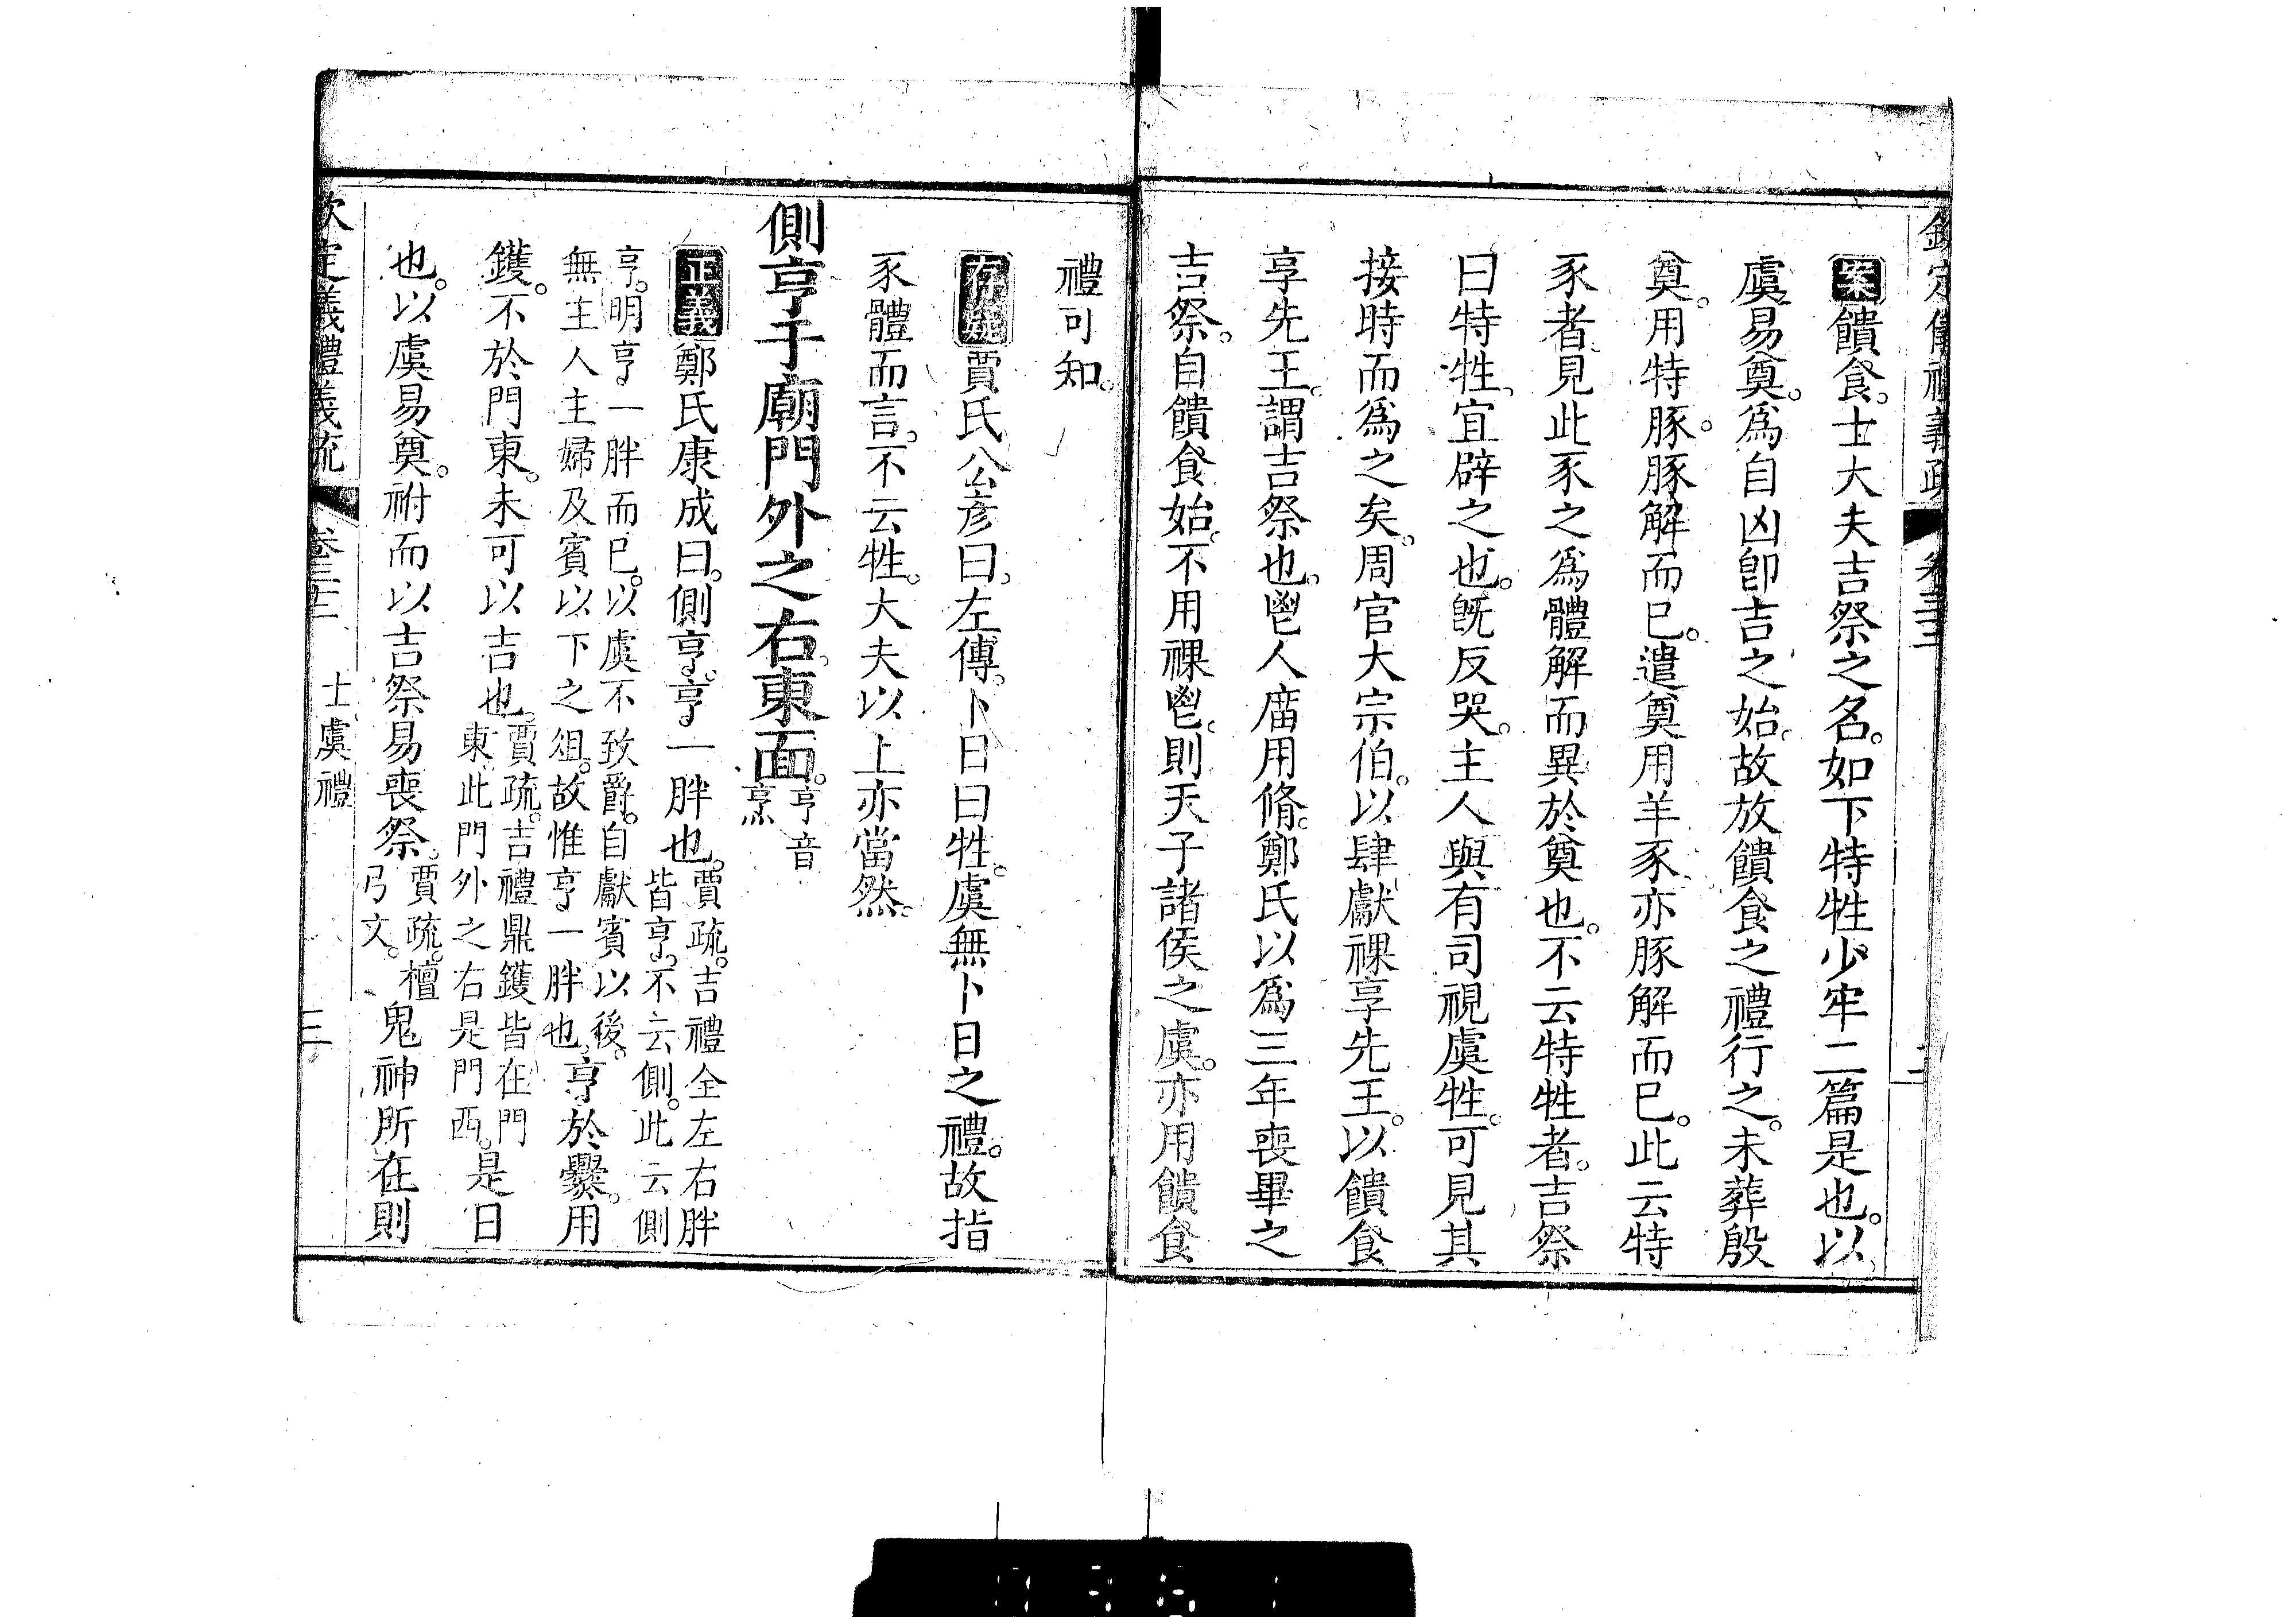 欽定儀禮義疏 卷三十三
案饋食。士大夫吉祭之名。如下特牲少牢二篇是也。以
虞易奠。爲自凶卽吉之始。故放饋食之禮行之。未葬殷
奠。用特豚。豚解而已。遣奠用羊豕亦豚解而已。此云特
豕者、見此豕之爲體解而異於奠也。不云特牲者。吉祭
曰特牲、宜辟之也。旣反哭。主人與有司視虞牲。可見其
接時而爲之矣。周官大宗伯。以肆獻祼享先王。以饋食
享先王。謂吉祭也。鬯人廟用脩。鄭氏以爲三年喪畢之
吉祭。自饋食始。不用祼鬯。則天子諸侯之虞。亦用饋食
禮可知。
存疑賈氏公彥曰。左傳。卜日曰牲。虞無卜日之禮。故指
豕體而言。不云牲。大夫以上亦當然。
側亨于廟門外之右。東面。亨音
烹
正義鄭氏康成曰。側亨。亨一胖也。賈疏。吉禮全左右胖
皆亨。不云側。此云側
亨。明亨一胖而已。以虞不致爵。自獻賓以後。
無主人主婦及賓以下之俎。故惟亨一胖也。亨於爨。用
鑊。不於門東。未可以吉也。賈疏。吉禮鼎鑊皆在門
東。此門外之右是門西。是日
也。以虞易奠。祔而以吉祭易喪祭。賈疏。檀
弓文。鬼神所在則
欽定儀禮義疏 卷三十三 士虞禮 三